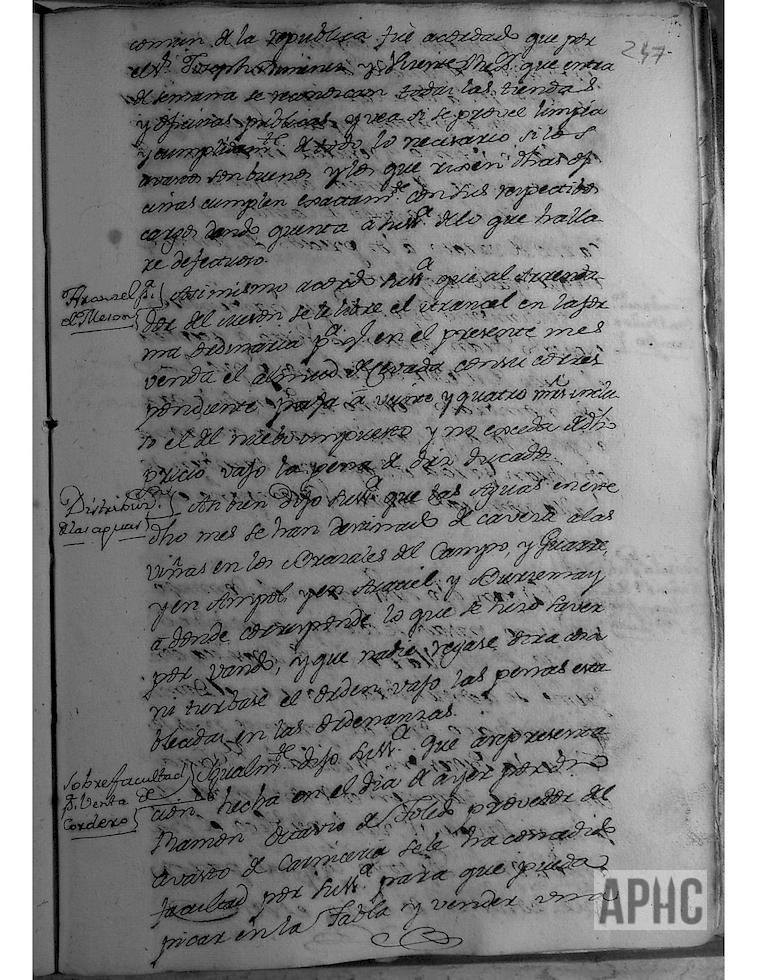 247
comun de la republica fue acordado que por
el Sr. Joseph y Vizente que entra
de semana se reconozcan todas las tiendas
y oficinas publicas, y vea si se provee limpia
y cumplidamte. de todo lo necesario, si los
avastos son buenos y los que rixen dhas ofi
cinas cumplen exactamte. con sus respectibos
cargos dando quenta a su ssa. de lo que halla
re defectuoso.
Aranzel pa.
el Meson
Asimismo acordó su ssa. que al Arrenda
dor del meson se le libre el Aranzel en la for
ma ordinaria pa. q. en el presente mes
venda el almud de Cevada con su corres
pondiente paja a veinte y quatro mrs. inclu
so el del nuebo impuesto y no exceda de dho
precio vajo la pena de diez ducados.
Distribución.
de las aguas
Tambien Dijo su ssa. que las Aguas en este
dho mes se han derivado de cavera a las
viñas en los Brazales del Campo, y
y en y en Araciel y
a donde corresponde lo que se hizo saver
por vando, y que nadie regase otra cosa
ni turbase el orden vajo las penas esta
blecidas en las ordenanzas.
Sobre facultad
de Venta de
Cordero
Igualmte. dijo su ssa. que a representa
cion hecha en el dia de ayer por dn.
Ramon Octavio de Toledo proveedor del
avasto de Carniceria se le ha concedido
facultad por su ssa. para que pueda
picar en la Tabla y vender
APHC